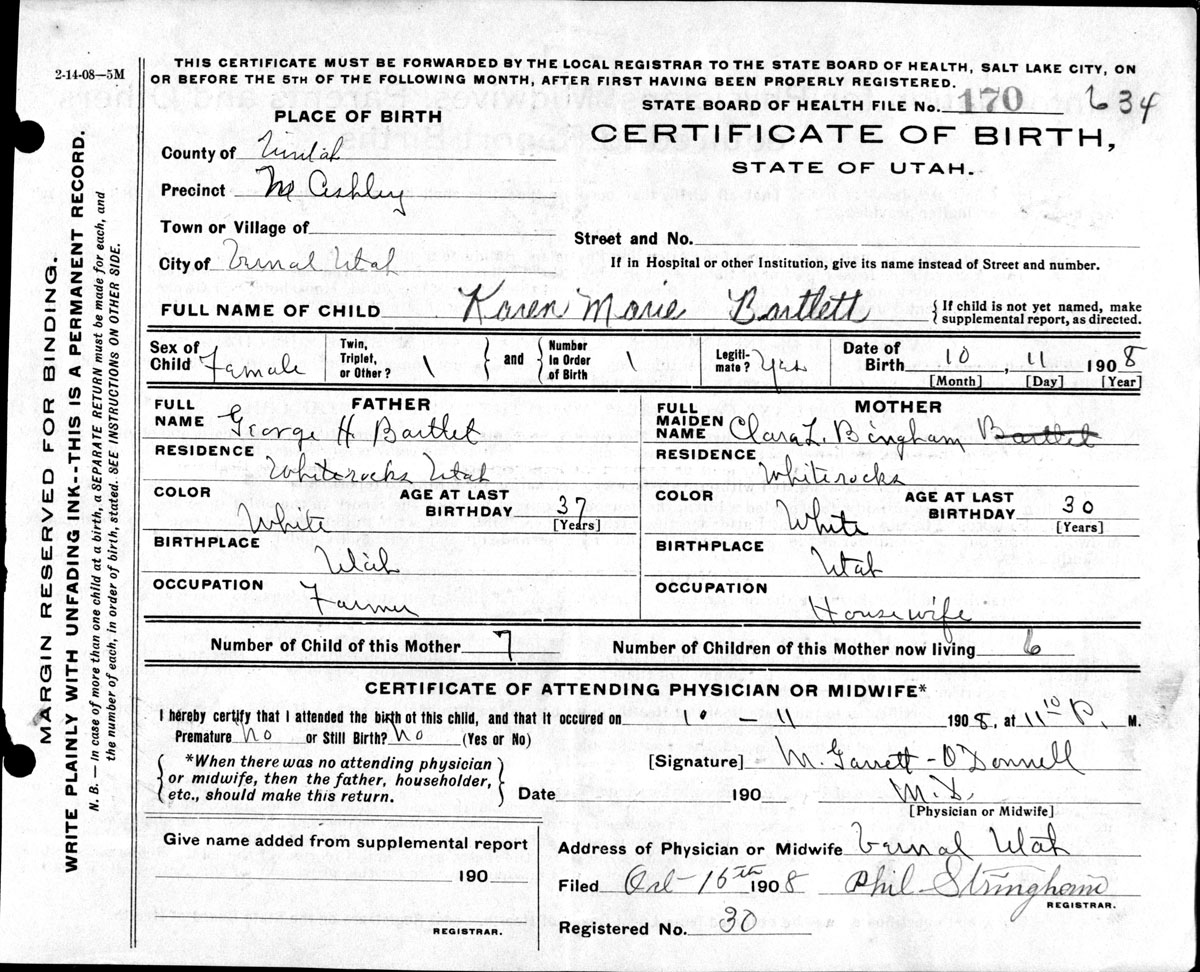 2-14-08—5M
THIS CERTIFICATE MUST BE FORWARDED BY THE LOCAL REGISTRAR TO THE STATE BOARD OF HEALTH, SALT LAKE CITY, ON
OR BEFORE THE 5TH OF THE FOLLOWING MONTH, AFTER FIRST HAVING BEEN PROPERLY REGISTERED.
STATE BOARD OF HEALTH FILE No. 170 634
PLACE OF BIRTH
CERTIFICATE OF BIRTH,
STATE OF UTAH.
County of Uintah
Precinct Ashley
Town or Village of
Street and No.
City of Vernal Utah
If in Hospital or other Institution, give its name instead of Street and number.
FULL NAME OF CHILD Karen Marie Bartlett
{ If child is not yet named, make
supplemental report, as directed.
Sex of Child Female
Twin, Triplet, or Other? 1 } and { Number in Order of Birth 1
Legiti-mate? Yes
Date of Birth 10, 11 1908
[Month] [Day] [Year]
FATHER
FULL NAME George H Bartlet
RESIDENCE
Whiterocks Utah
COLOR White
AGE AT LAST BIRTHDAY 37
[Years]
BIRTHPLACE
Utah
OCCUPATION
Farmer
MOTHER
FULL MAIDEN NAME Clara L. Bingham Bartlet
RESIDENCE
Whiterocks
COLOR White
AGE AT LAST BIRTHDAY 30
[Years]
BIRTHPLACE
Utah
OCCUPATION
Housewife
Number of Child of this Mother 7
Number of Children of this Mother now living 6
CERTIFICATE OF ATTENDING PHYSICIAN OR MIDWIFE*
I hereby certify that I attended the birth of this child, and that it occured on 10 - 11 1908, at 11 10 P. M.
Premature No or Still Birth? No (Yes or No)
{ *When there was no attending physician
or midwife, then the father, householder,
etc., should make this return. }
[Signature] M. Garrett-O'Donnell
Date 190 M.D.
[Physician or Midwife]
Give name added from supplemental report
190
REGISTRAR.
Address of Physician or Midwife Vernal Utah
Filed Oct 16th 1908 Phil Stringham
REGISTRAR.
Registered No. 30
MARGIN RESERVED FOR BINDING.
WRITE PLAINLY WITH UNFADING INK--THIS IS A PERMANENT RECORD.
N. B. — In case of more than one child at a birth, a SEPARATE RETURN must be made for each, and
the number of each, in order of birth, stated. SEE INSTRUCTIONS ON OTHER SIDE.